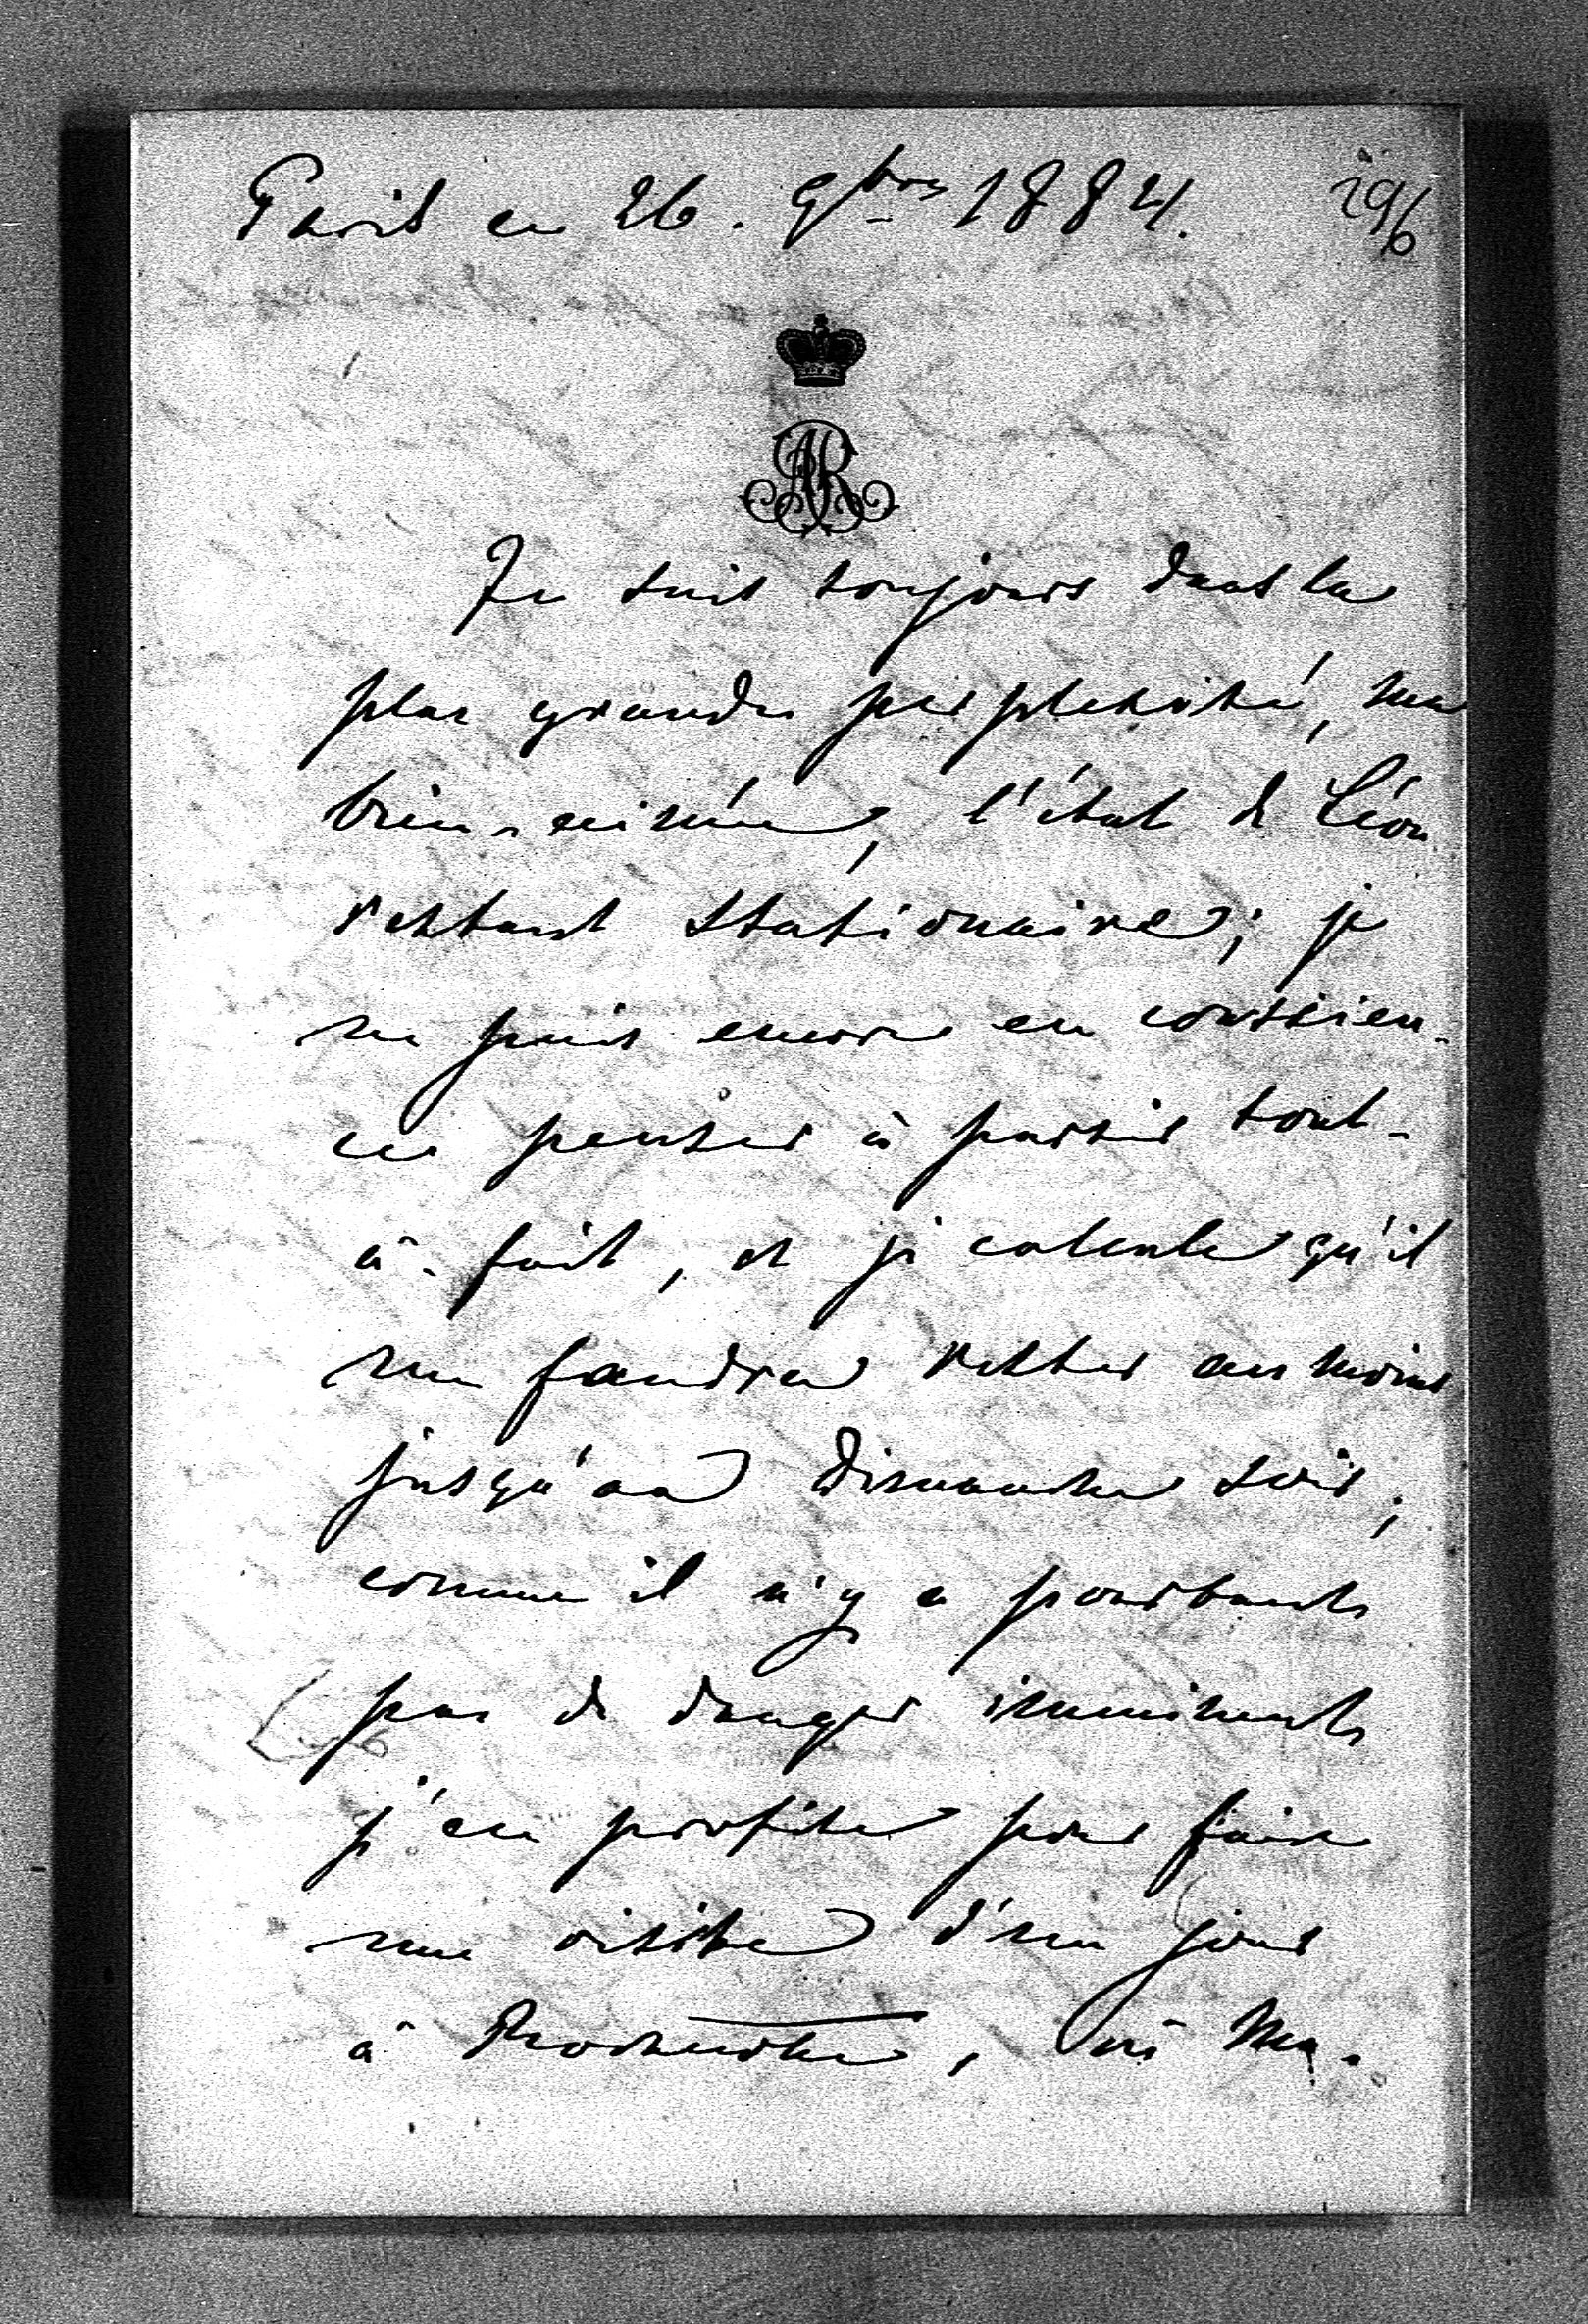 Paris ce 26. 9bre 1884.
296
AR
Je suis toujours dans la
plus grande perplexité, ma
bien-aimée, l'état de Léon
restant stationaire; je
ne puis encore en conscien-
ce penser à partir tout-
à-fait, et je calcule qu'il
me faudra rester au moins
jusqu'au dimanche soir;
comme il n'y a pourtant
pas de danger imminent
j'en profite pour faire
une visite d'un jour
à, où Ma-